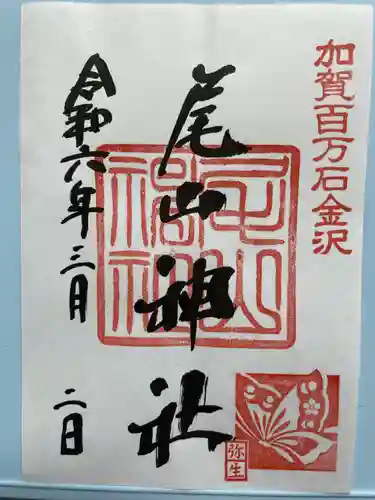 加賀百万石金沢
尾山神社
尾山神社
令和六年三月二日
弥生